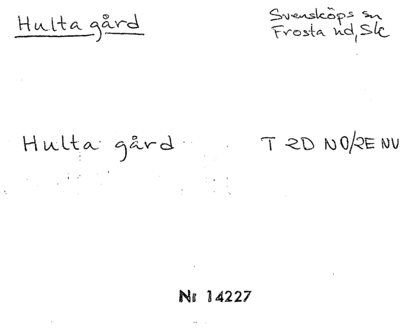 Hulta gård
Svensköps sn
Frosta hd, Sk
Hulta gård
T 2D NO/2E NV
Nr 14227